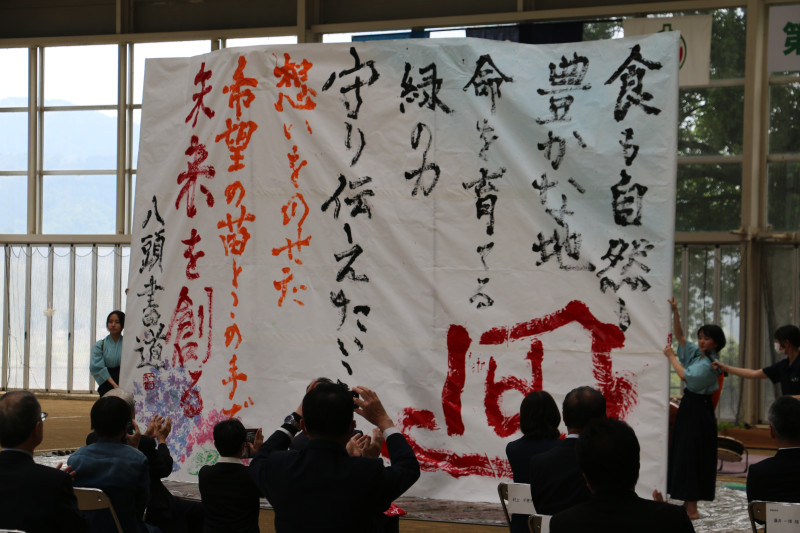 食も自然も
豊かな地
命を育てる
緑の力
守り伝えたい
想いをのせた
希望の苗とこの手で
未来を創る
八頭書道
第